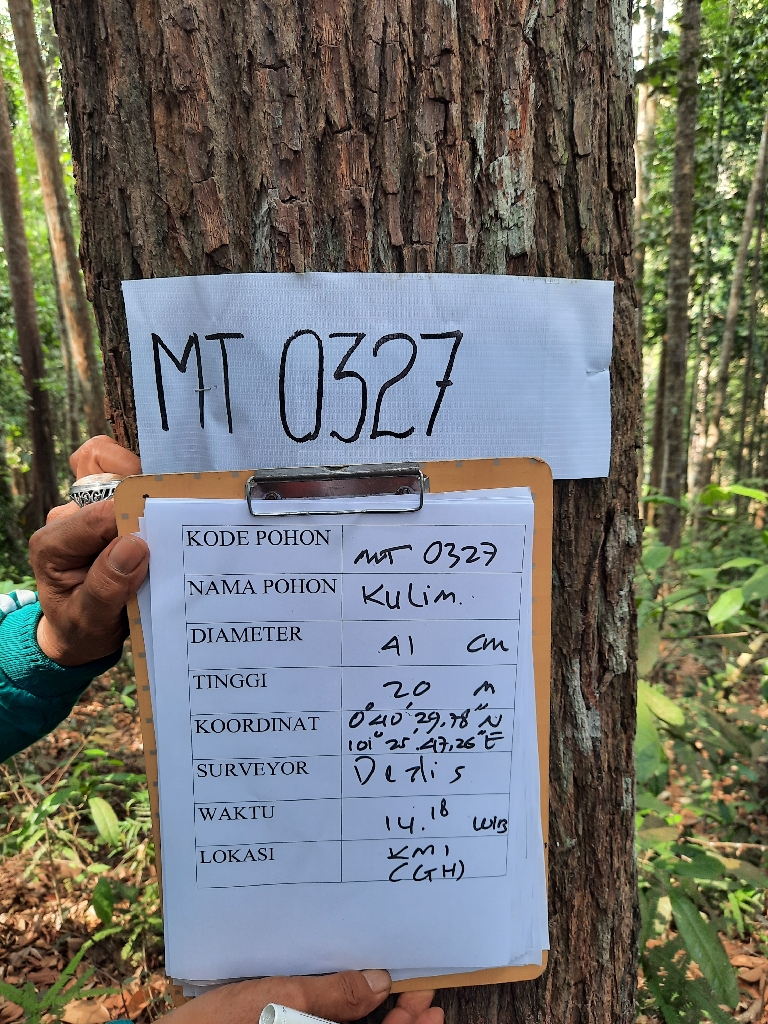 MT 0327
KODE POHON MT 0327
NAMA POHON Kulim.
DIAMETER 41 cm
TINGGI 20 m
KOORDINAT 0°40'29.78"N
101°25'.47.26"E
SURVEYOR
WAKTU 14.18 WIB
LOKASI KMI
(GH)